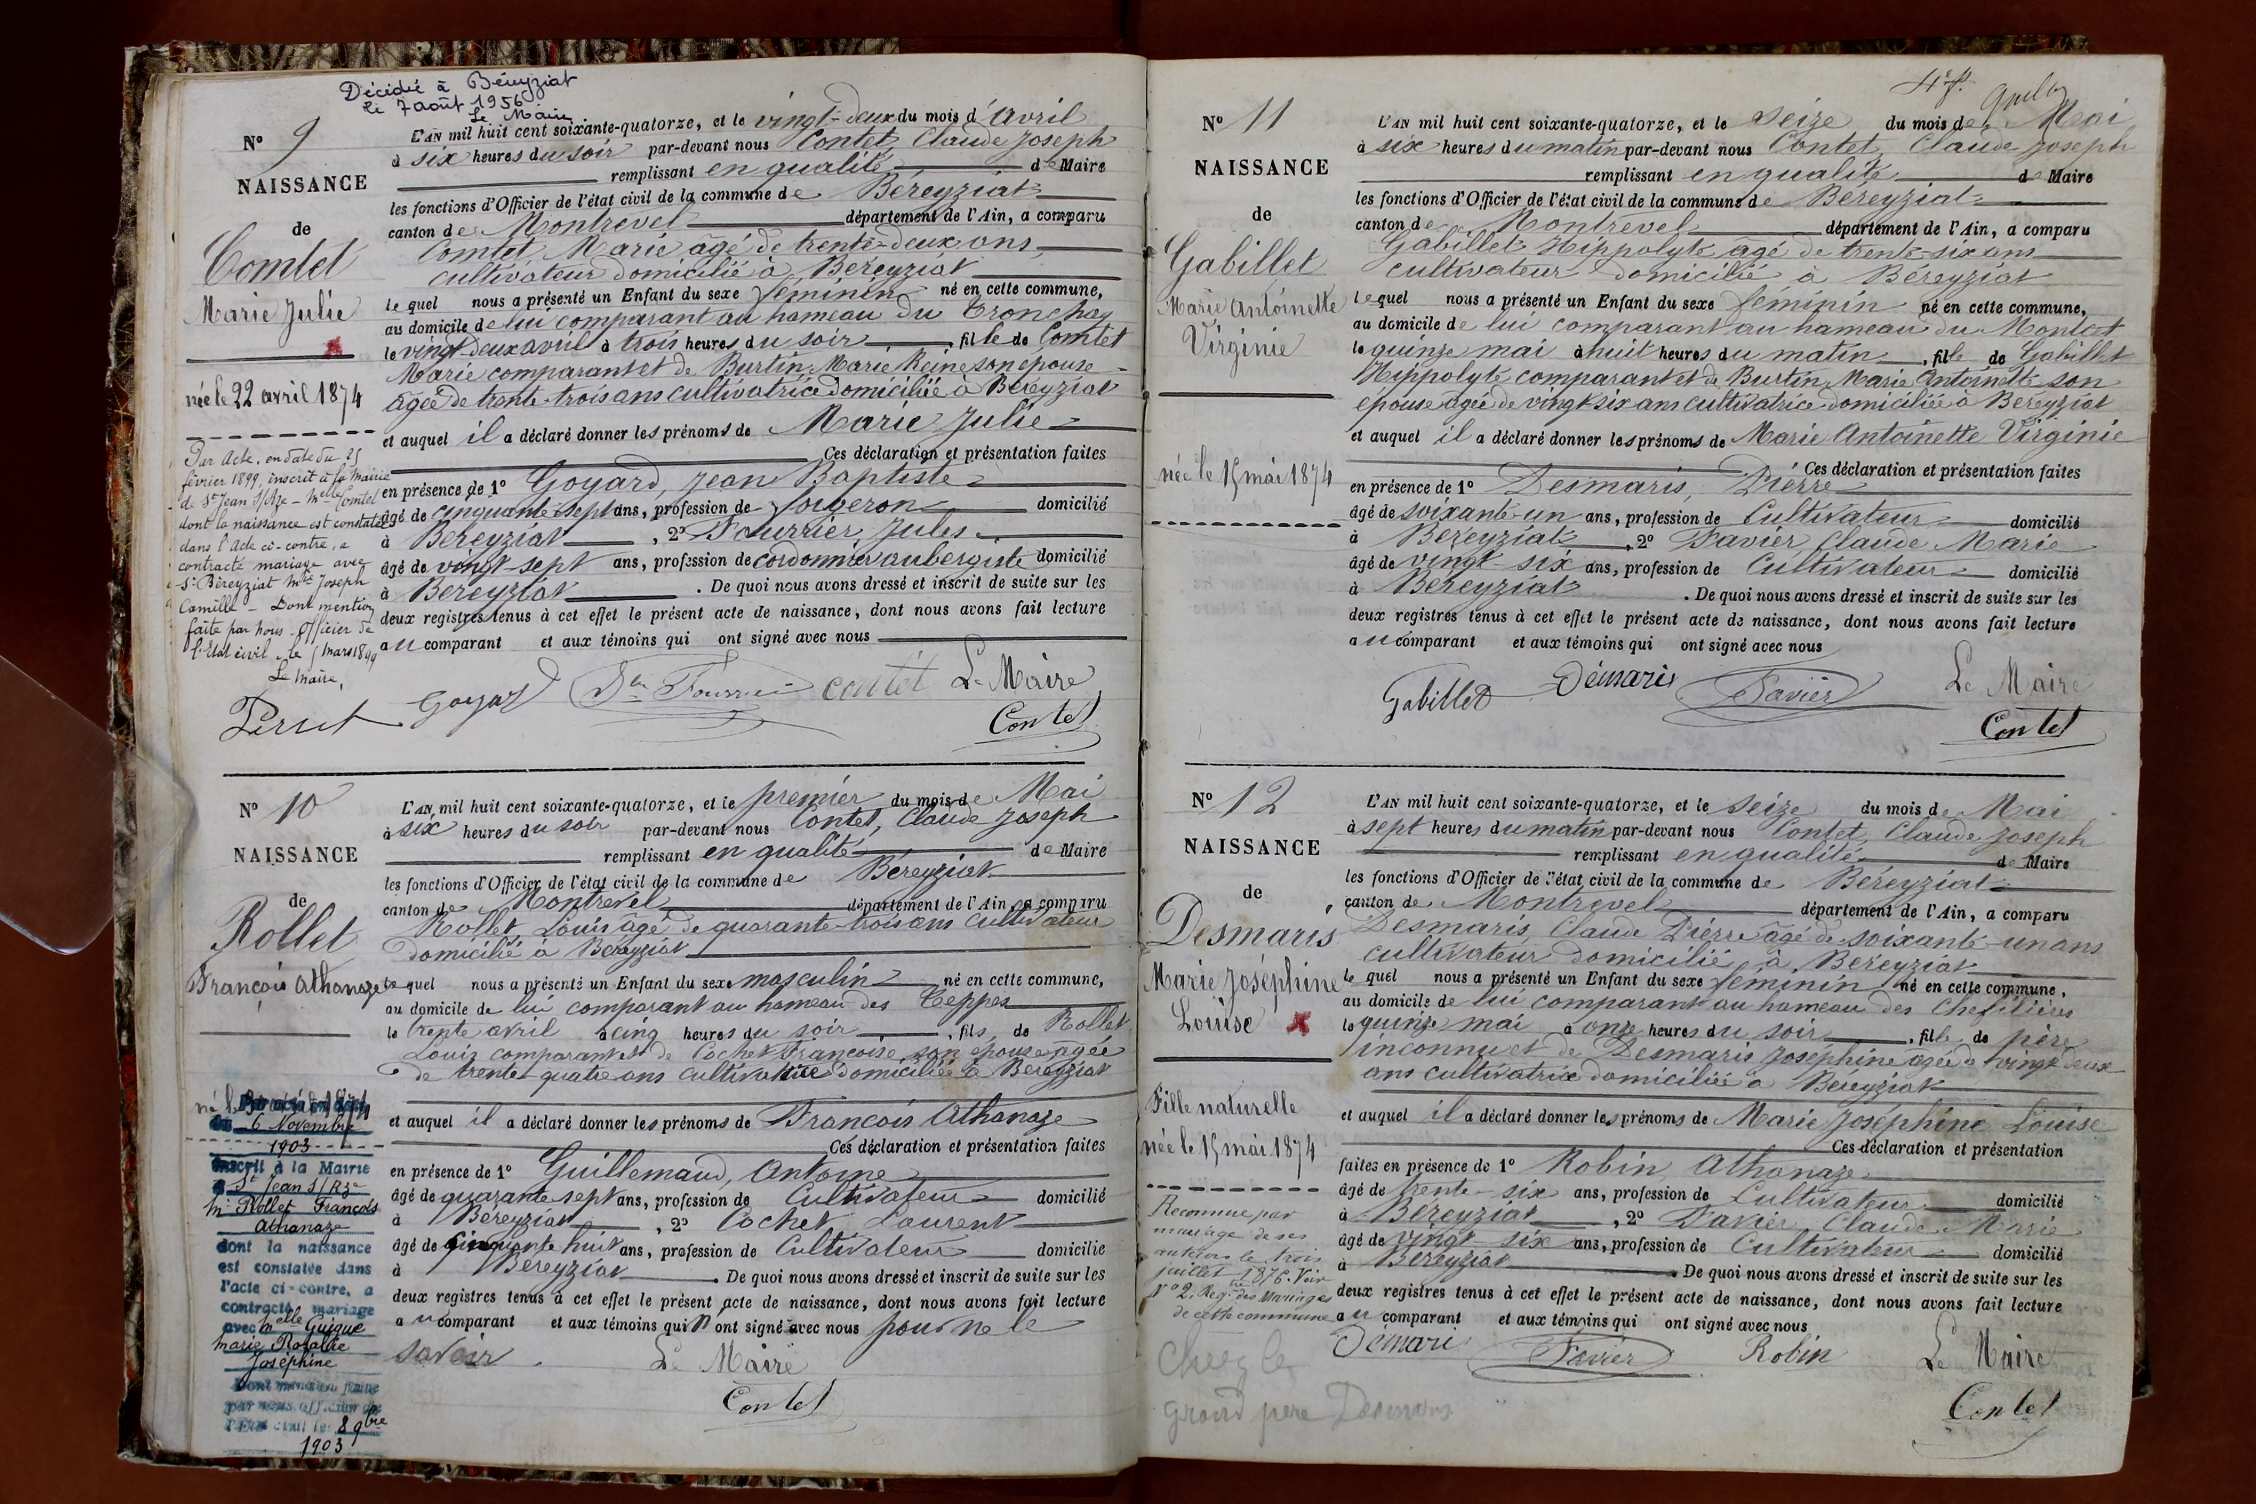 Décédée à Béreyziat
le 7 août 1956
Le Maire
N° 9
NAISSANCE
de
Comtet
Marie Julie
née le 22 avril 1874
Par Acte, en date du 25
février 1899, inscrit à la Mairie
de St Jean s/Rze - Melle Comtet
dont la naissance est constatée
dans l'Acte ci-contre, a
contracté mariage avec
Sr Béreyziat Mie Joseph
Camille - Dont mention
faite par nous Officier de
l'Etat civil le 5 mars 1899
Le Maire,
Perret
L'AN mil huit cent soixante-quatorze, et le vingt-deux du mois d'avril
à six heures du soir par-devant nous Contet, Claude Joseph
remplissant en qualité de Maire
les fonctions d'Officier de l'état civil de la commune de Béreyziat
canton de Montrevel département de l'Ain, a comparu
Comtet, Marie âgé de trente-deux ans,
cultivateur domicilié à Béreyziat
le quel nous a présenté un Enfant du sexe féminin né en cette commune,
au domicile de lui comparant au hameau du Tronchay
le vingt-deux avril à trois heures du soir, fille de Comtet
Marie comparant et de Burtin, Marie Reine son épouse
âgée de trente-trois ans cultivatrice domiciliée à Béreyziat
et auquel il a déclaré donner les prénoms de Marie Julie
Ces déclaration et présentation faites
en présence de 1° Goyard, Jean Baptiste
âgé de cinquante sept ans, profession de forgeron domicilié
à Béreyziat, 2° Fourrier, Jules
âgé de vingt-sept ans, profession de cordonnier aubergiste domicilié
à Béreyziat. De quoi nous avons dressé et inscrit de suite sur les
deux registres tenus à cet effet le présent acte de naissance, dont nous avons fait lecture
au comparant et aux témoins qui ont signé avec nous
Goyard Fourrier contet Le Maire
Contet
N° 10
NAISSANCE
de
Rollet
François Athanaze
né le 30 avril 1874
6 Novembre
1903
inscrit à la Mairie
St Jean s/Rze
Mr Rollet François
Athanaze
dont la naissance
est constatée dans
l'acte ci-contre, a
contracté mariage
avec Melle Guigue
Marie Rosalie
Joséphine
Dont mention faite
par nous Officier de
l'Etat civil le 8 9bre
1903
L'AN mil huit cent soixante-quatorze, et le premier du mois de Mai
à six heures du soir par-devant nous Contet, Claude Joseph
remplissant en qualité de Maire
les fonctions d'Officier de l'état civil de la commune de Béreyziat
canton de Montrevel département de l'Ain, a comparu
Rollet, Louis âgé de quarante-trois ans cultivateur
domicilié à Béreyziat
le quel nous a présenté un Enfant du sexe masculin né en cette commune,
au domicile de lui comparant au hameau des Teppes
le trente avril à cinq heures du soir, fils de Rollet
Louis comparant et de Cochet Françoise son épouse âgée
de trente-quatre ans cultivatrice domiciliée à Béreyziat
et auquel il a déclaré donner les prénoms de François Athanaze
Ces déclaration et présentation faites
en présence de 1° Guillemaud, Antoine
âgé de quarante sept ans, profession de Cultivateur domicilié
à Béreyziat, 2° Cochet, Laurent
âgé de cinquante huit ans, profession de Cultivateur domicilié
à Béreyziat. De quoi nous avons dressé et inscrit de suite sur les
deux registres tenus à cet effet le présent acte de naissance, dont nous avons fait lecture
au comparant et aux témoins qui n'ont signé avec nous pour ne le
savoir. Le Maire
Contet
N° 11
NAISSANCE
de
Gabillet
Marie Antoinette
Virginie
née le 15 mai 1874
L'AN mil huit cent soixante-quatorze, et le seize du mois de Mai
à six heures du matin par-devant nous Contet, Claude Joseph
remplissant en qualité de Maire
les fonctions d'Officier de l'état civil de la commune de Béreyziat
canton de Montrevel département de l'Ain, a comparu
Gabillet Hippolyte âgé de trente-six ans
cultivateur domicilié à Béreyziat
le quel nous a présenté un Enfant du sexe féminin né en cette commune,
au domicile de lui comparant au hameau du Montcet
le quinze mai à huit heures du matin, fille de Gabillet
Hippolyte comparant et de Burtin, Marie Antoinette son
épouse âgée de vingt-six ans cultivatrice domiciliée à Béreyziat
et auquel il a déclaré donner les prénoms de Marie Antoinette Virginie
Ces déclaration et présentation faites
en présence de 1° Desmaris, Pierre
âgé de soixante-un ans, profession de Cultivateur domicilié
à Béreyziat, 2° Favier, Claude Marie
âgé de vingt six ans, profession de Cultivateur domicilié
à Béreyziat. De quoi nous avons dressé et inscrit de suite sur les
deux registres tenus à cet effet le présent acte de naissance, dont nous avons fait lecture
au comparant et aux témoins qui ont signé avec nous
Gabillet Démaris Favier Le Maire
Contet
N° 12
NAISSANCE
de
Desmaris
Marie Joséphine
Louise
Fille naturelle
née le 15 mai 1874
Reconnue par
mariage de ses
auteurs le trois
juillet 1876. Voir
N° 2. Regtre des Mariages
de cette commune
Chez le
grand père Desmaris
L'AN mil huit cent soixante-quatorze, et le seize du mois de Mai
à sept heures du matin par-devant nous Contet, Claude Joseph
remplissant en qualité de Maire
les fonctions d'Officier de l'état civil de la commune de Béreyziat
canton de Montrevel département de l'Ain, a comparu
Desmaris, Claude Pierre âgé de soixante-un ans
cultivateur domicilié à Béreyziat
le quel nous a présenté un Enfant du sexe féminin né en cette commune,
au domicile de lui comparant au hameau des Chefilières
le quinze mai à onze heures du soir, fille de père
inconnu et de Desmaris Joséphine âgée de vingt-deux
ans cultivatrice domiciliée à Béreyziat
et auquel il a déclaré donner les prénoms de Marie Joséphine Louise
Ces déclaration et présentation
faites en présence de 1° Robin, Athanaze
âgé de trente-six ans, profession de Cultivateur domicilié
à Béreyziat, 2° Favier, Claude Marie
âgé de vingt six ans, profession de Cultivateur domicilié
à Béreyziat. De quoi nous avons dressé et inscrit de suite sur les
deux registres tenus à cet effet le présent acte de naissance, dont nous avons fait lecture
au comparant et aux témoins qui ont signé avec nous
Démari Favier Robin Le Maire
Contet